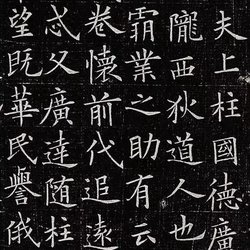 夫上柱國德廣
隴西狄道人也
霸業之助有云
卷懷前代追遠
忒父廣達随柱
望既華民譽俄